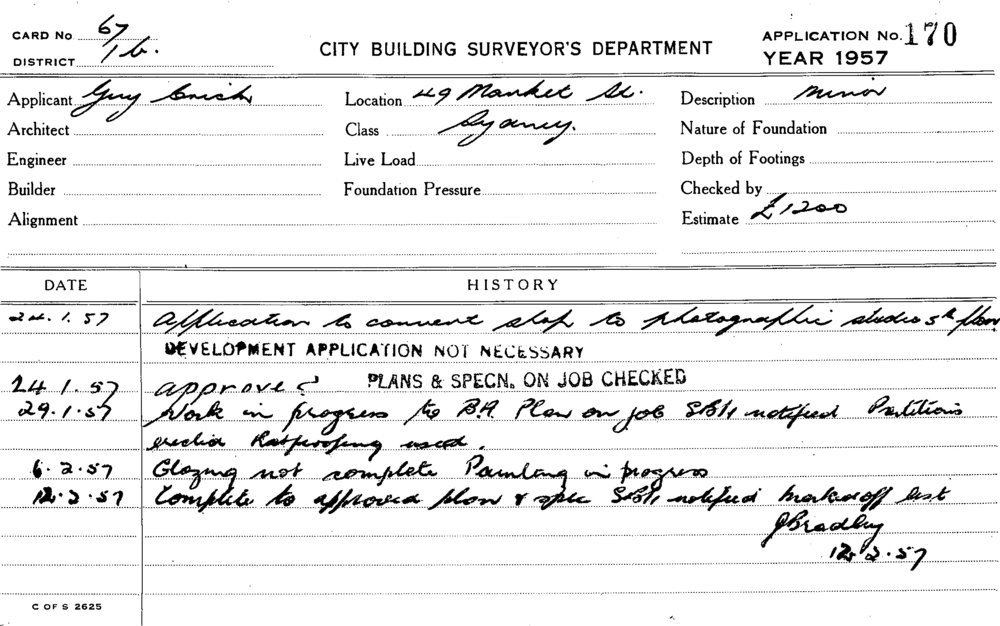 CARD No 67
DISTRICT 1 b.
CITY BUILDING SURVEYOR'S DEPARTMENT
APPLICATION No. 170
YEAR 1957
Applicant Guy
Location 49 Market St.
Description Minor
Architect
Class Sydney.
Nature of Foundation
Engineer
Live Load
Depth of Footings
Builder
Foundation Pressure
Checked by
Alignment
Estimate £1200
DATE
HISTORY
24.1.57 Application to convert shop to photographic studio 5th floor
DEVELOPMENT APPLICATION NOT NECESSARY
24.1.57 approved PLANS & SPECN. ON JOB CHECKED
29.1.57 Work in progress to B.A. Plan on job notified Partitions
erected Ratproofing used.
6.2.57 Glazing not complete Painting in progress
12.2.57 Complete to approved plan & spec notified Marked off list
J Bradley
12.2.57
C OF S 2625